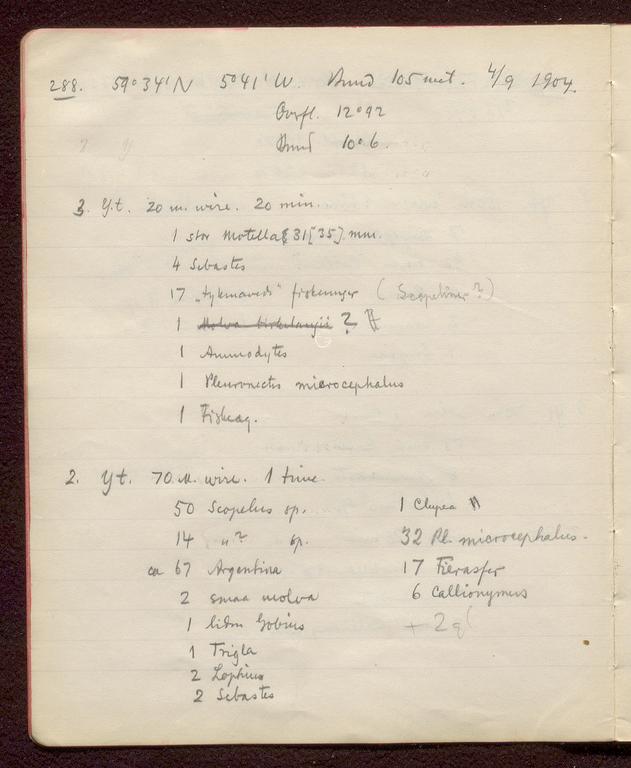 288. 59°34'N 5°41'W. Bund 105 met. 4/9 1904.
Overfl. 12°92
Bund 10°6.
3. Y.t. 20 m. wire. 20 min.
1 stor Motella 31[35] mm.
4 Sebastes
17 fiskeunger (Scopeliner?)
1 Molva birkelangii ?
1 Ammodytes
1 Pleuronectes microcephalus
1 Fiskeæg.
2. Y.t. 70 M. wire. 1 time.
50 Scopelus sp. 1 Clupea
14 " ? sp. 32 Pl. microcephalus.
ca 67 Argentina 17 Fierasfer
2 smaa molva 6 Callionymus
1 liden Gobius + 2
1 Trigla
2 Lophius
2 Sebastes